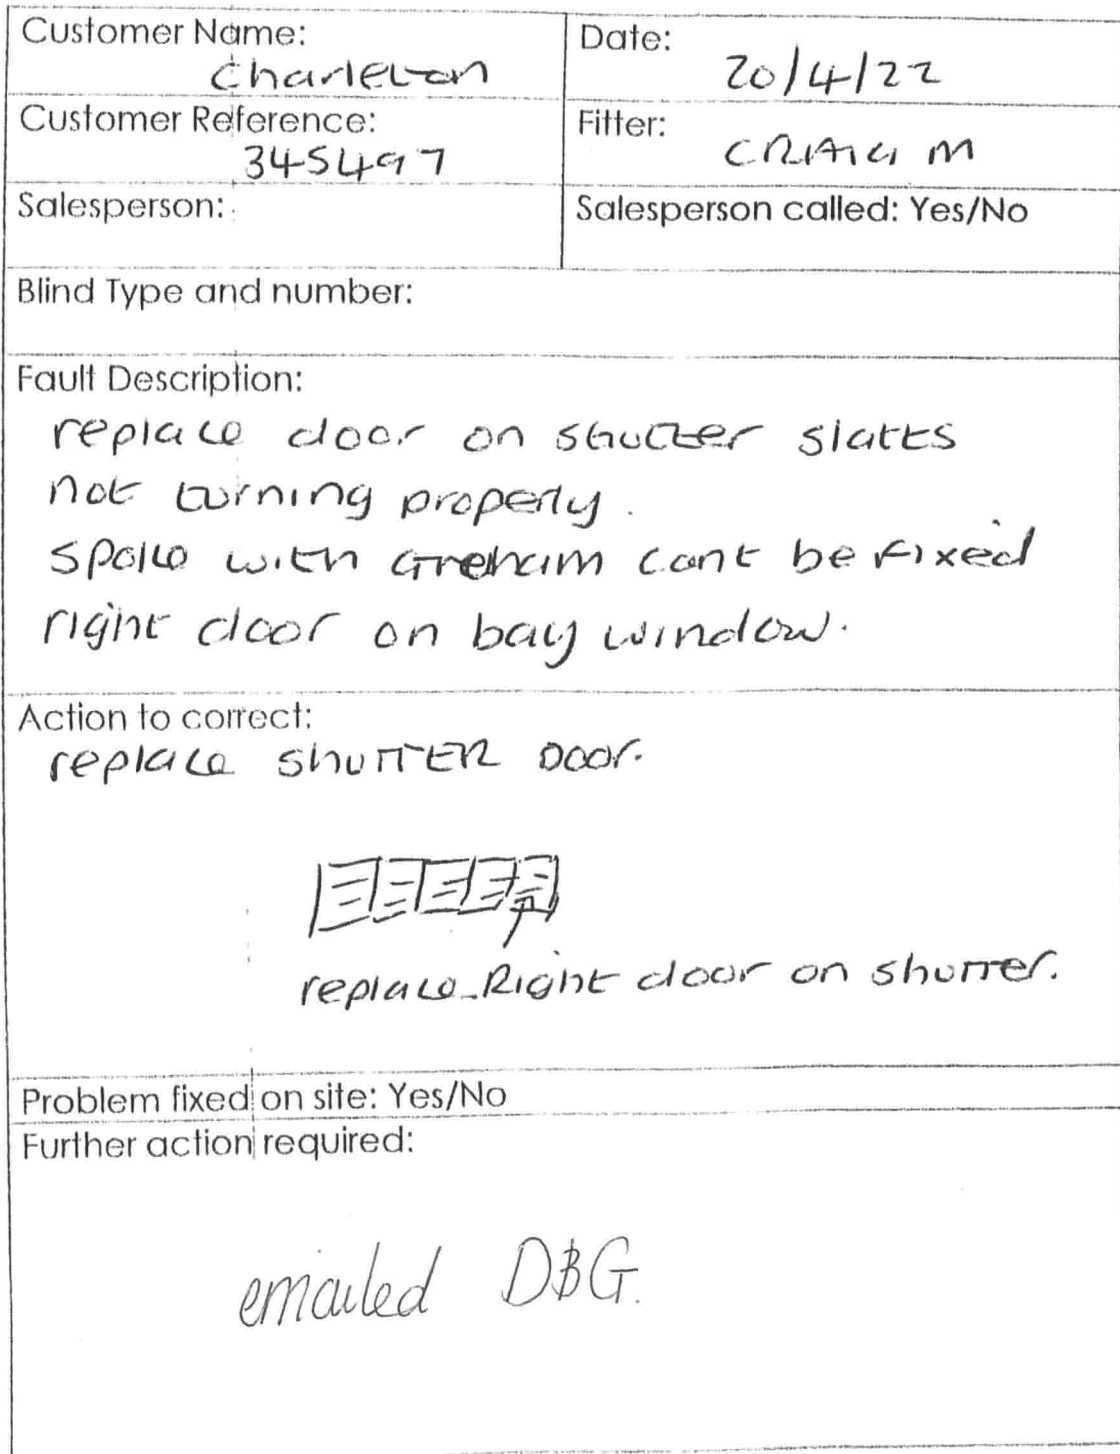 Customer Name:
Charleton
Date:
20/4/22
Customer Reference:
345497
Fitter:
CRAIG M
Salesperson:
Salesperson called: Yes/No
Blind Type and number:
Fault Description:
replace door on shutter slatts
not turning properly.
spoke with Greham cant be fixed
right door on bay window.
Action to correct:
replace shuTTER Door.
replace Right door on shutter.
Problem fixed on site: Yes/No
Further action required:
emailed DBG.